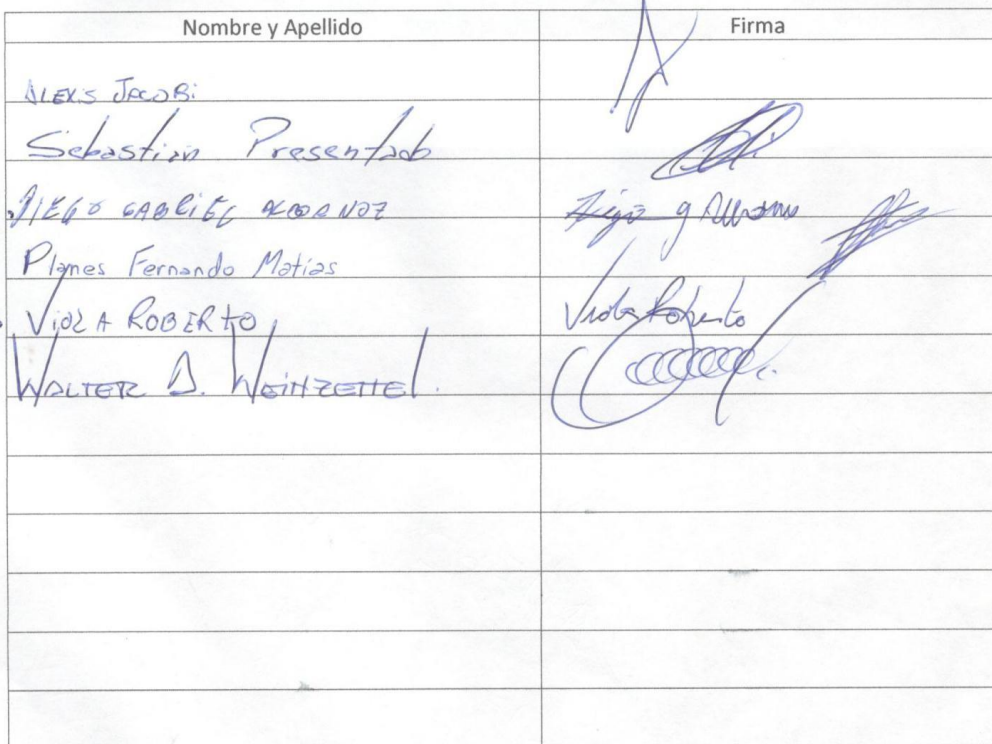 Nombre y Apellido Firma
ALEXIS JACOBi
Sebastian Presentado
DIEGO GABRIEL ALBORNOZ
Planes Fernando Matias
VioLA ROBERTO Viola Roberto
WALTER D. WEiNZETTEL.